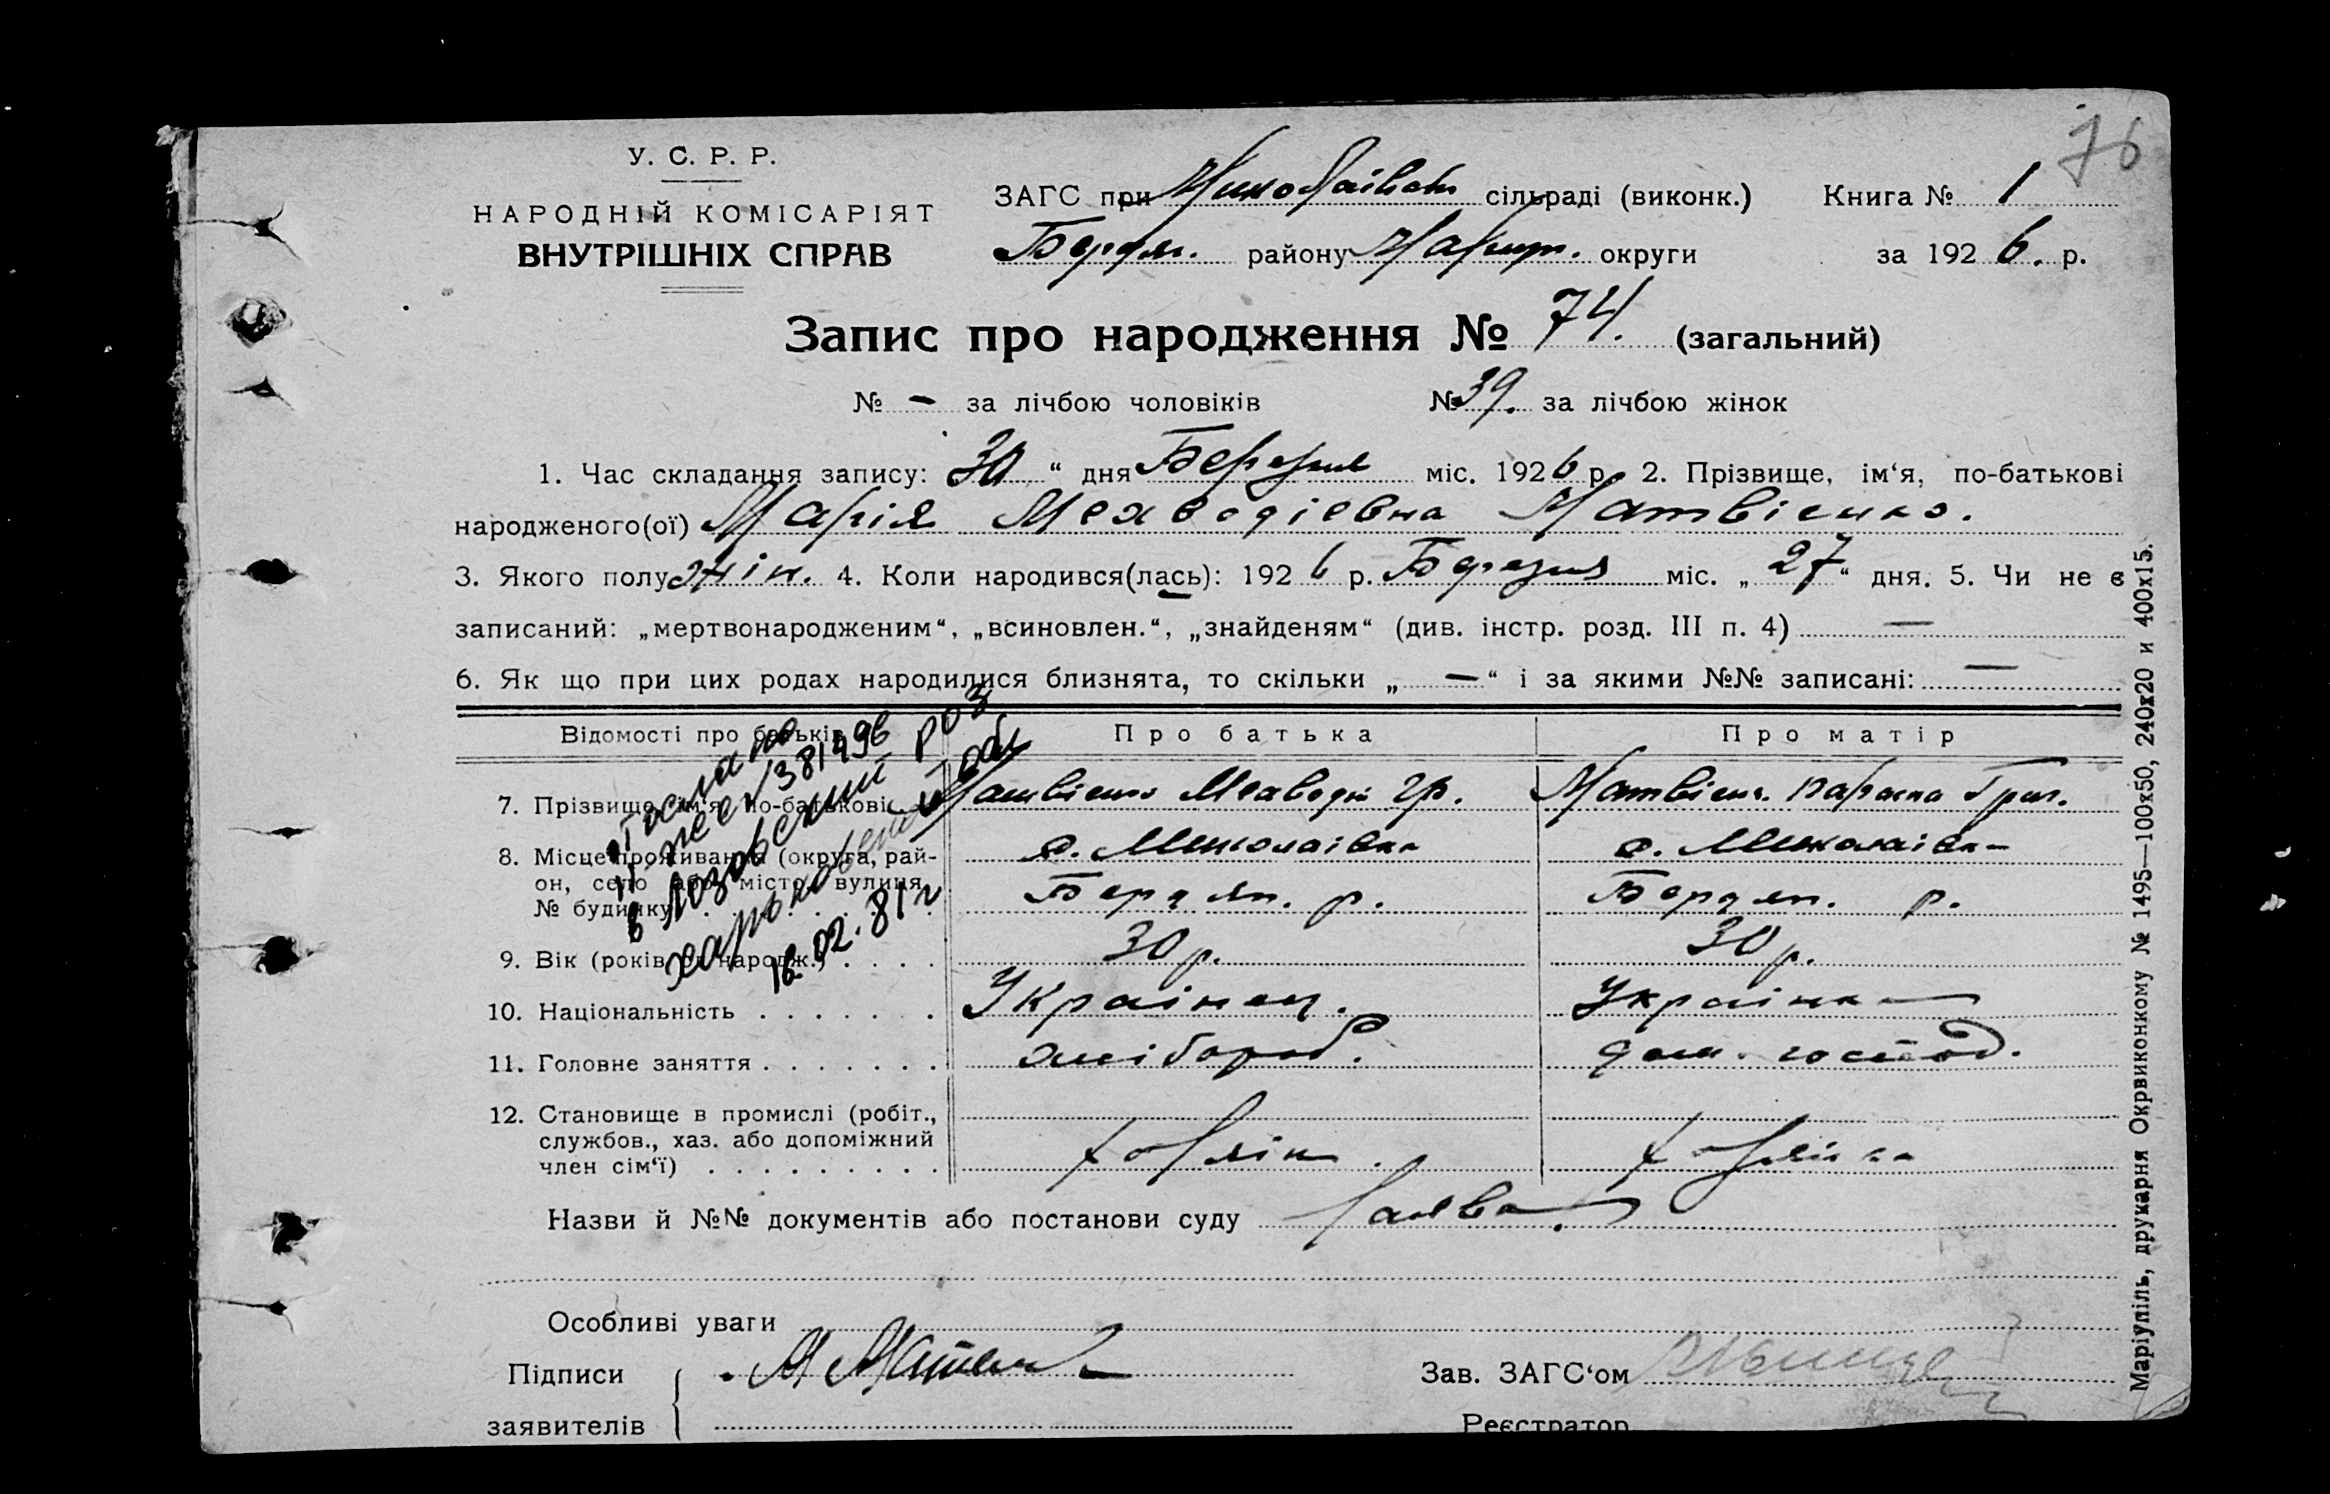 76
У. С. Р. Р.
НАРОДНІЙ КОМІСАРІЯТ
ВНУТРІШНІХ СПРАВ
ЗАГС при Миколаївськ сільраді (виконк.) Книга № 1
Бердян. району Маріуп. округи за 1926. р.
Запис про народження № 74. (загальний)
№ - за лічбою чоловіків № 39. за лічбою жінок
1. Час складання запису: 30 “ дня Березня міс. 1926 р. 2. Прізвище, ім‘я, по-батькові
народженого(ої) Марія Мехводіевна Матвієнко.
3. Якого полу жін. 4. Коли народився(лась): 1926 р. Березня міс. „ 27 “ дня. 5. Чи не є
записаний: „мертвонародженим“, „всиновлен.“, „знайденям“ (див. інстр. розд. III п. 4) —
6. Як що при цих родах народилися близнята, то скільки „ — “ і за якими №№ записані: —
Відомості про батьків Про батька Про матір
7. Прізвище, ім‘я, по-батькові Матвієнко Мехводій Гр. Матвієн. Параска Григ.
8. Місце проживання (округа, рай-
он, село або місто, вулиця,
№ будинку) . . . . . . .
с. Миколаівка с. Миколаівка
Бердян. р. Бердян. р.
9. Вік (років від народж.) . . . . 30 р. 30 р.
10. Національність . . . . . . . Українец. Українка
11. Головне заняття . . . . . . . хлібороб. дом. господ.
12. Становище в промислі (робіт.,
службов., хаз. або допоміжний
член сім‘ї) . . . . . . . . .
хазяін. хазяйка
Послано
1381496
в Лозовский РОЗ
харьковской обл
18.02.81 г
Назви й №№ документів або постанови суду Заява.
Особливі уваги
Підписи
заявителів
М Матвієнко
Зав. ЗАГС‘ом
Реєстратор
Маріупіль, друкарня Окрвиконкому № 1495—100x50, 240x20 и 400x15.